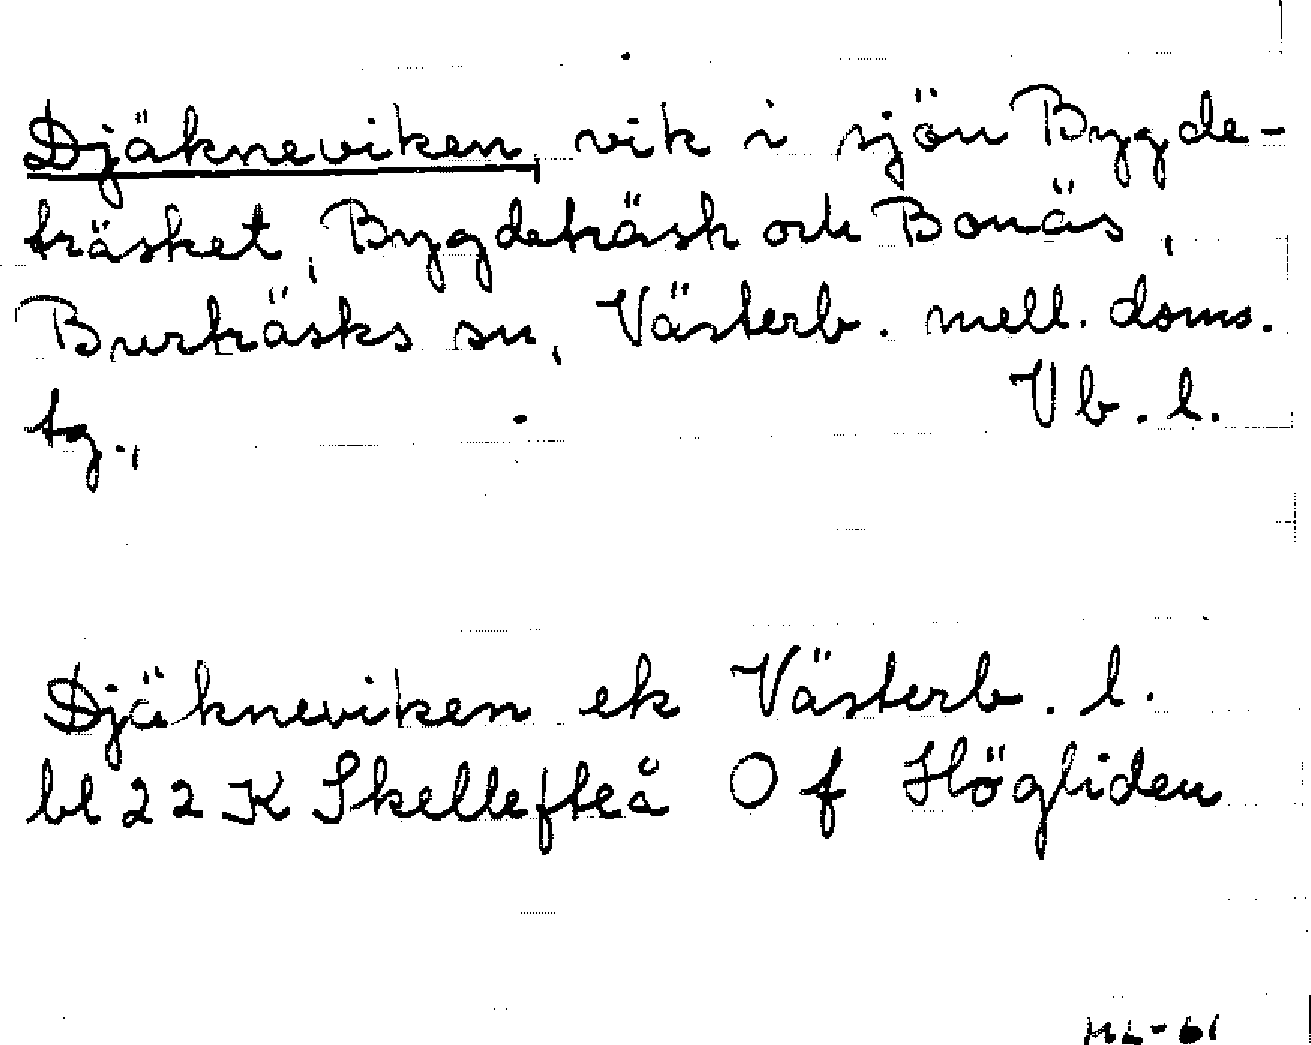 Djäkneviken, vik i sjön Bygde-
träsket, Bygdeträsk och Bonäs,
Burträsks sn, Västerb. mell. doms.
tg., Vb. l.
Djäkneviken ek Västerb. l.
bl 22 K Skellefteå O f Högliden
ML-61